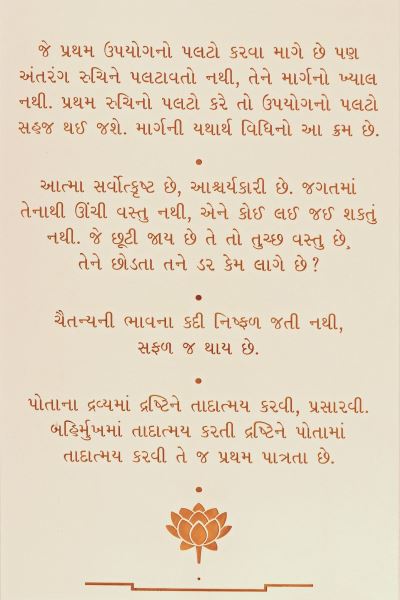 જે પ્રથમ ઉપયોગનો પલટો કરવા માગે છે પણ
અંતરંગ રુચિને પલટાવતો નથી, તેને માર્ગનો ખ્યાલ
નથી. પ્રથમ રુચિનો પલટો કરે તો ઉપયોગનો પલટો
સહજ થઈ જશે. માર્ગની યથાર્થ વિધિનો આ ક્રમ છે.
આત્મા સર્વોત્કૃષ્ટ છે, આશ્ચર્યકારી છે. જગતમાં
તેનાથી ઊંચી વસ્તુ નથી, એને કોઈ લઈ જઈ શકતું
નથી. જે છૂટી જાય છે તે તો તુચ્છ વસ્તુ છે,
તેને છોડતા તને ડર કેમ લાગે છે?
ચૈતન્યની ભાવના કદી નિષ્ફળ જતી નથી,
સફળ જ થાય છે.
પોતાના દ્રવ્યમાં દ્રષ્ટિને તાદાત્મય કરવી, પ્રસારવી.
બહિર્મુખમાં તાદાત્મય કરતી દ્રષ્ટિને પોતામાં
તાદાત્મય કરવી તે જ પ્રથમ પાત્રતા છે.